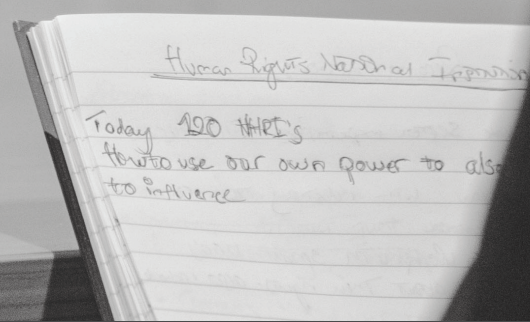 Human Rights National
Today 120 NHRI's
How to use our own power to also
to influence